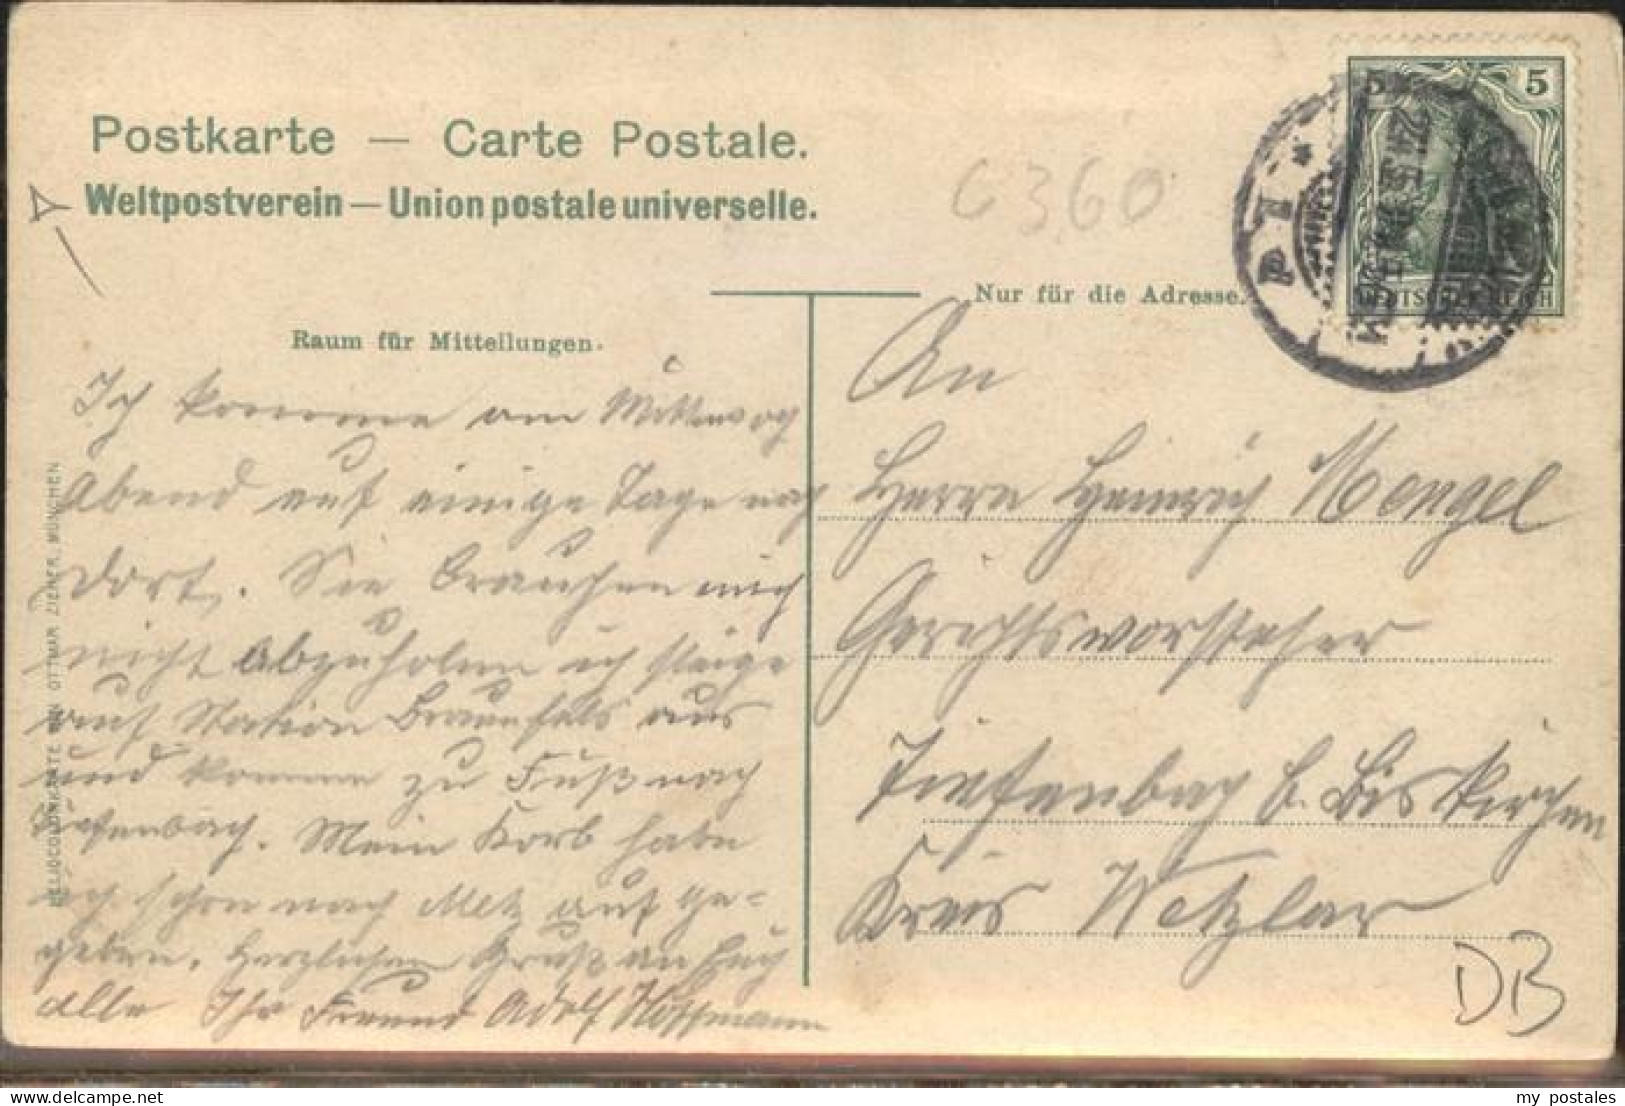 Postkarte — Carte Postale.
Weltpostverein — Union postale universelle.
6360
5 5
DEUTSCHES REICH
Nur für die Adresse.
Raum für Mitteilungen.
Ich komme am Mittwoch
Abend auf einige Tage nach
dort. Sie brauchen mich
nicht abzuholen ich steige
auf Station Braunfels aus
und komme zu Fuß nach
Tiefenbach. Mein Korb habe
ich schon nach Metz auf ge=
geben. Herzlichen Gruß an Euch
alle Ihr Freund Adolf Hoffmann
An
Herrn Heinrich Mengel
Gerichtsvorsteher
Tiefenbach b. Biskirchen
Kreis Wetzlar
DB
HELIOCOLORKARTE VON OTTMAR ZIEHER, MÜNCHEN
my postales